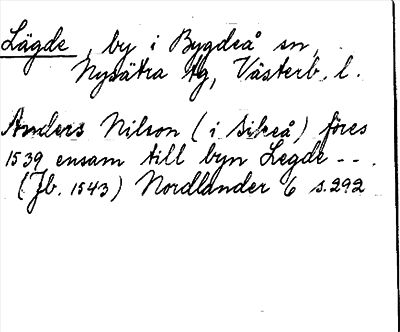 Lägde, by i Bygdeå sn,
Nysätra tg, Västerb. l.
Anders Nilson (i Sikeå) föres
1539 ensam till byn Legde --.
(Jb. 1543) Nordlander 6 s. 292